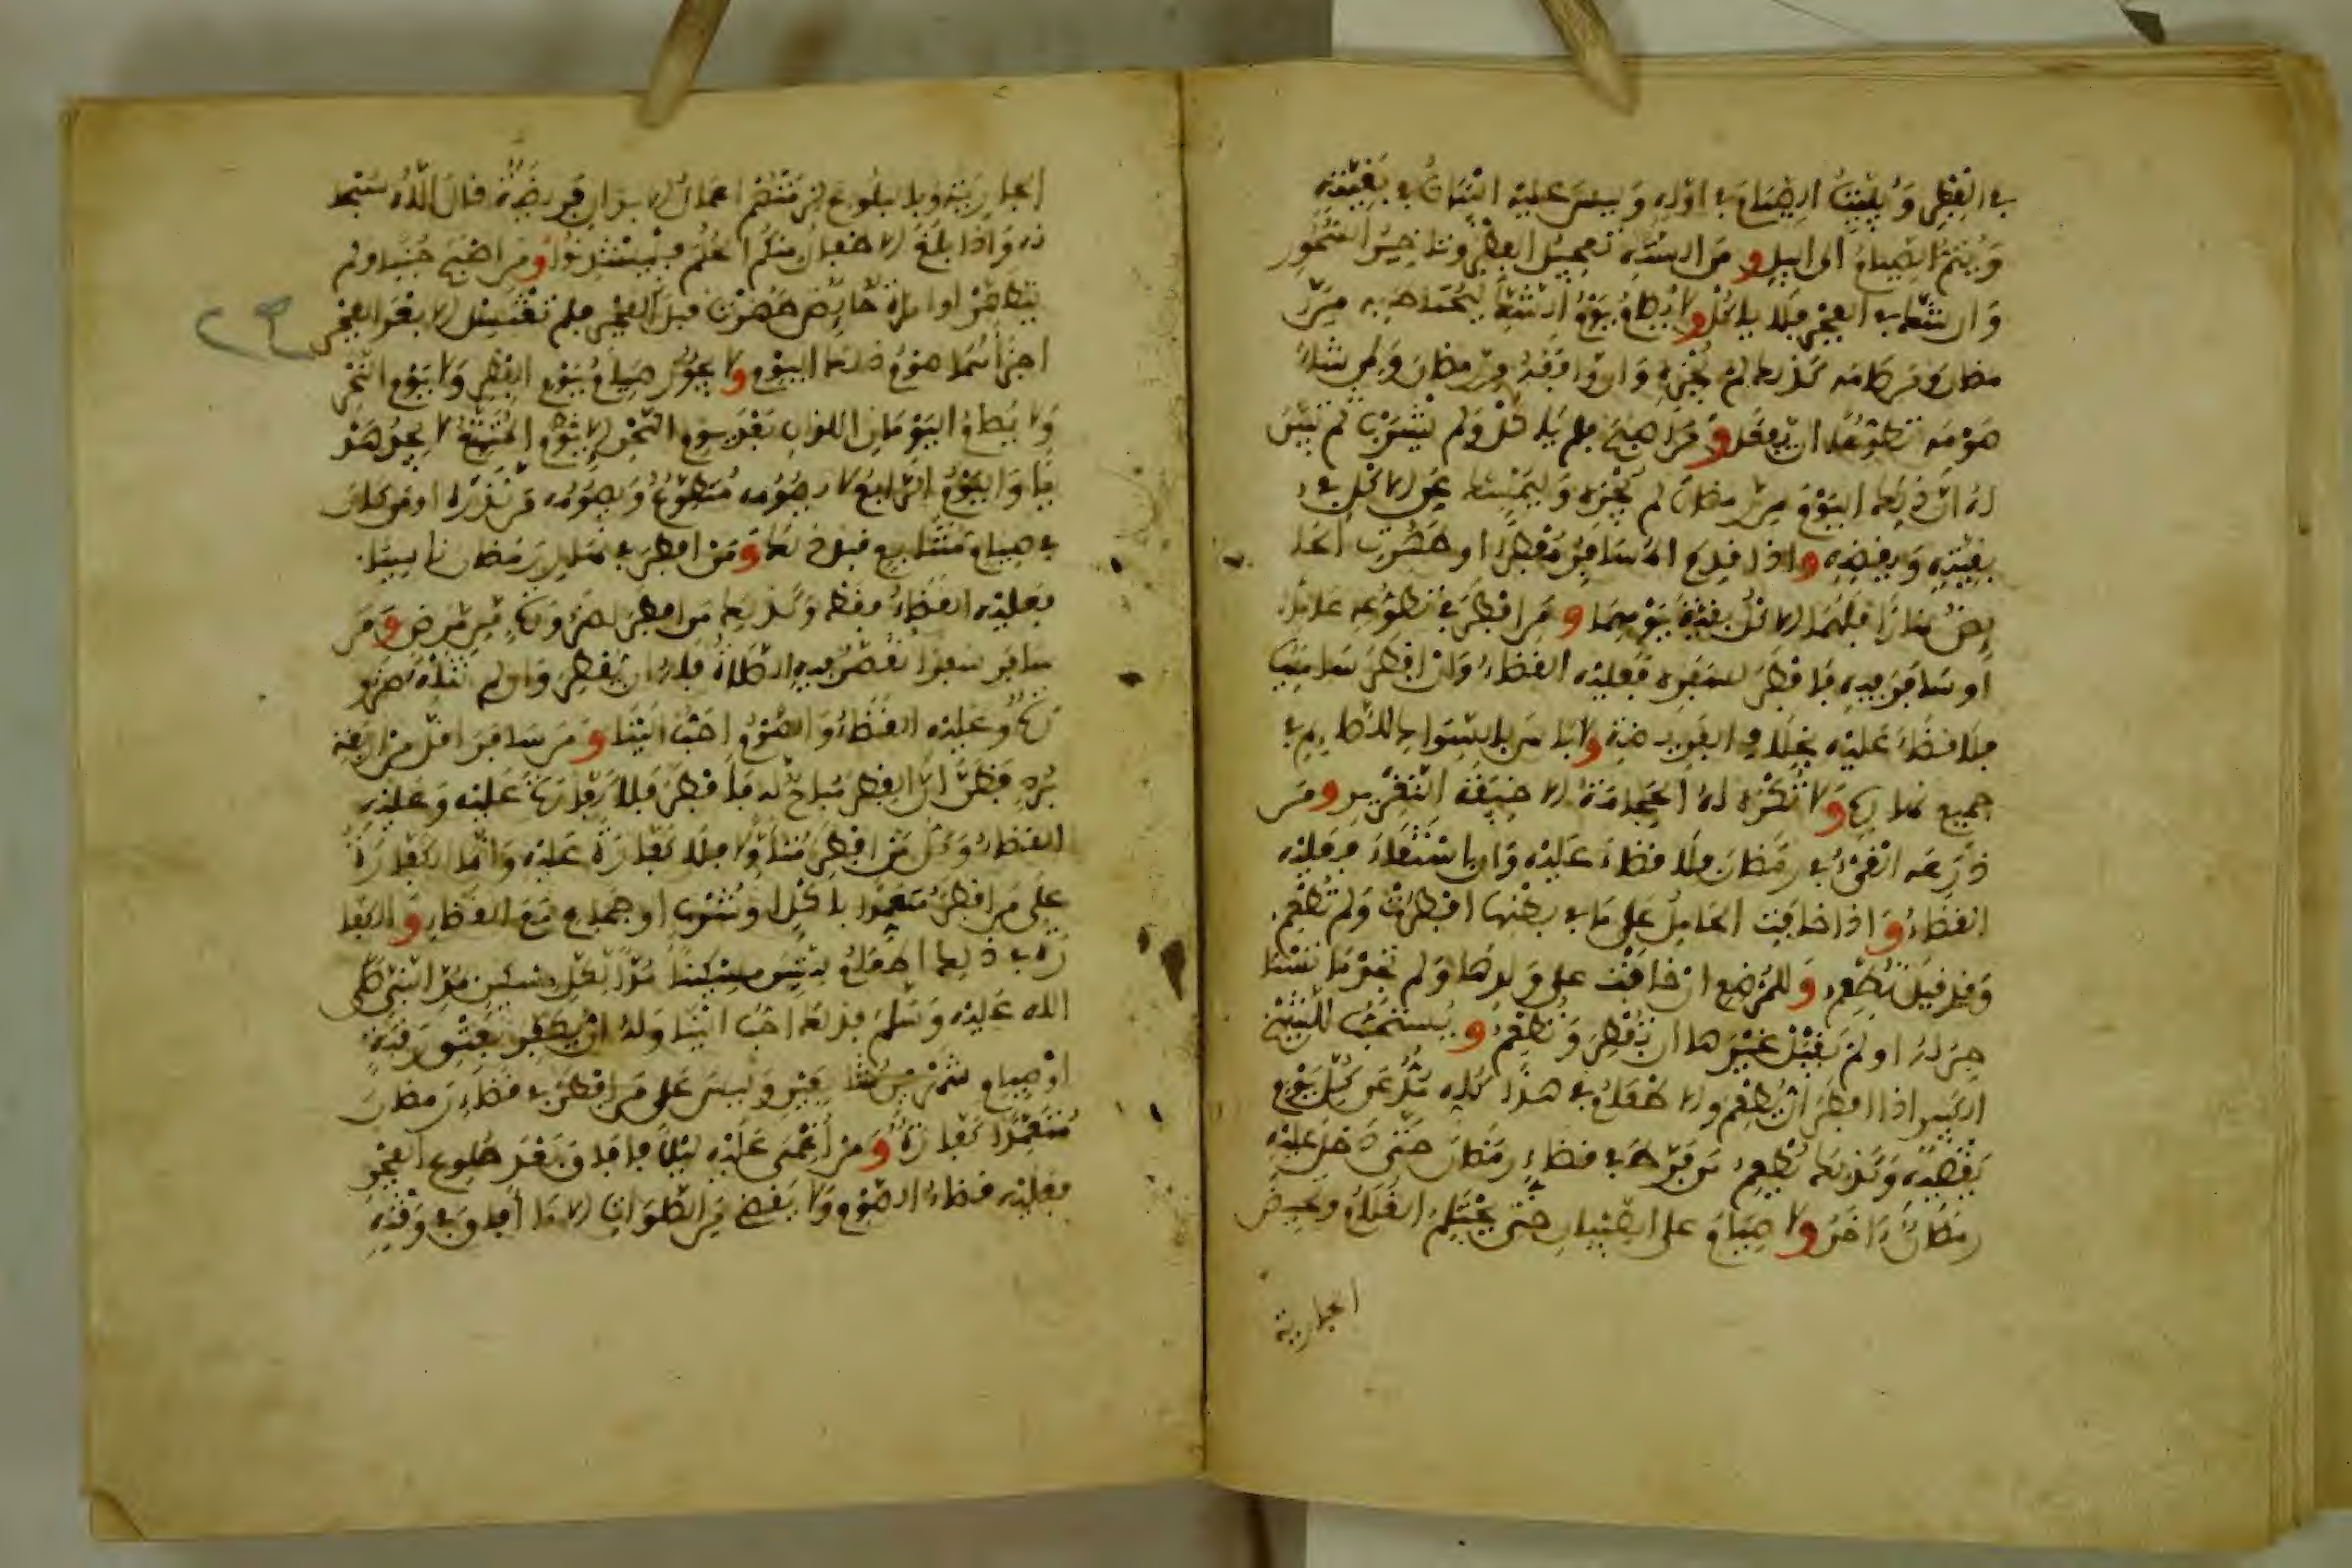 في الفطر ويبيت الصيام في أوله وليس عليه البيات في بقيته
ويتم الصيام الى اليل و من السنة تعجيل الفطر وتاخير السحور
وان شك في الفجر فلا ياكل و لا يصام يوم الشك ليحتاط به من ر
مضان ومن صامه كذلك لم يجزه وان وافقه من رمضان ولمن شاء
صومه تطوعا ان يفعل و من اصبح فلم ياكل ولم يشرب ثم تبين
له ان ذلك اليوم من رمضان لم يجزه وليمسك عن الاكل في
بقيته ويقضيه و اذا قدم المسافر مفطرا او طهرت الحا
يض نهارا فلهما الاكل بقية يومهما و من افطر في تطوعه عامدا
او سافر فيه فافطر لسفره فعليه القضاء وان افطر ساهيا
فلا قضاء عليه بخلاف الفريضة و لا باس بالسواك للصايم في
جميع نهاره و لا تكره له الحجامة الا خيفة التغرير و من
ذرعه القيء في رمضان فلا قضاء عليه وان استقاء فعليه
القضاء و اذا خافت الحامل على ما في بطنها افطرت ولم تطعم
وقد قيل تطعم و للمرضع ان خافت على ولدها ولم تجد ما تستا
جر له او لم يقبل غيرها ان تفطر وتطعم و يستحب للشيخ
الكبير اذا افطر ان يطعم والاطعام في هذا كله مد عن كل يوم
يقضيه وكذلك يطعم من فرط في قضاء رمضان حتى دخل عليه
رمضان ءاخر و لا صيام على الصبيان حتى يحتلم الغلام وتحيض
الجارية
الجارية وبالبلوغ لزمتهم اعمال الابدان فريضة قال الله سبحا
نه واذا بلغ الاطفال منكم الحلم فليستاذنوا و من اصبح جنبا ولم
يتطهر او امراة حايض طهرت قبل الفجر فلم تغتسل الا بعد الفجر
اجزاهما صوم ذلك اليوم و لا يجوز صيام يوم الفطر ولا يوم النحر
ولا يصام اليومان اللذان بعد يوم النحر الا المتمتع لا يجد هد
يا واليوم الرابع لا يصومه متطوع ويصومه من نذره او من كان
في صيام متتابع قبل ذلك و من افطر في نهار رمضان ناسيا
فعليه القضاء فقط وكذلك من افطر لضرورة من مرض و من
سافر سفرا تقصر فيه الصلاة فله ان يفطر وان لم تنله ضرو
رة وعليه القضاء والصوم احب الينا و من سافر اقل من اربعة
برد فظن ان الفطر مباح له فافطر فلا كفارة عليه وعليه
القضاء وكل من افطر متاولا فلا كفارة عليه وانما الكفارة
على من افطر متعمدا باكل او شرب او جماع مع القضاء و الكفا
رة في ذلك اطعام ستين مسكينا مدا لكل مسكين بمد النبي صلى
الله عليه وسلم فذلك احب الينا وله ان يكفر بعتق رقبة
او صيام شهرين متتابعين وليس على من افطر في قضاء رمضان
متعمدا كفارة و من اغمي عليه ليلا فافاق بعد طلوع الفجر
فعليه قضاء الصوم ولا يقضي من الصلوات الا ما افاق في وقته